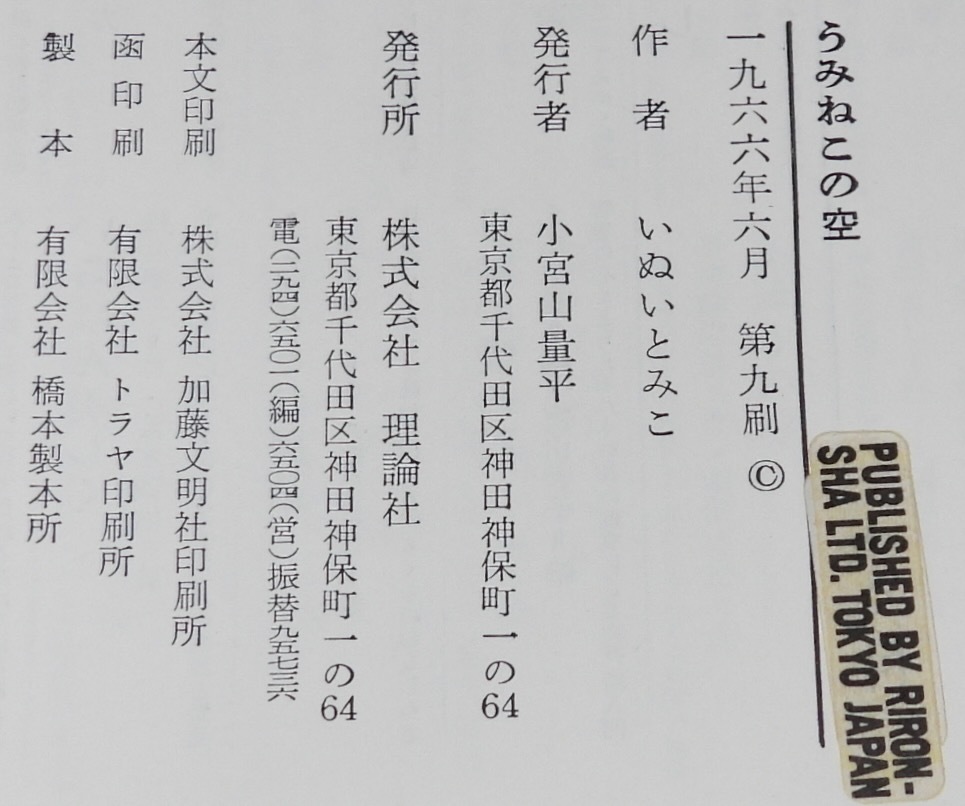 うみねこの空
一九六六年六月 第九刷 ©
作者 いぬいとみこ
発行者 小宮山量平
東京都千代田区神田神保町一の64
発行所 株式会社 理論社
東京都千代田区神田神保町一の64
電(二九四)六五〇一(編)六五〇四(営)振替九五七三六
本文印刷 株式会社 加藤文明社印刷所
函印刷 有限会社 トラヤ印刷所
製本 有限会社 橋本製本所
PUBLISHED BY RIRON-
SHA LTD. TOKYO JAPAN